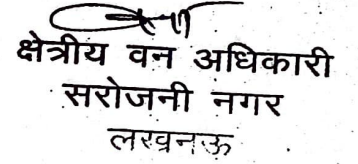 क्षेत्रीय वन अधिकारी
सरोजनी नगर
लखनऊ